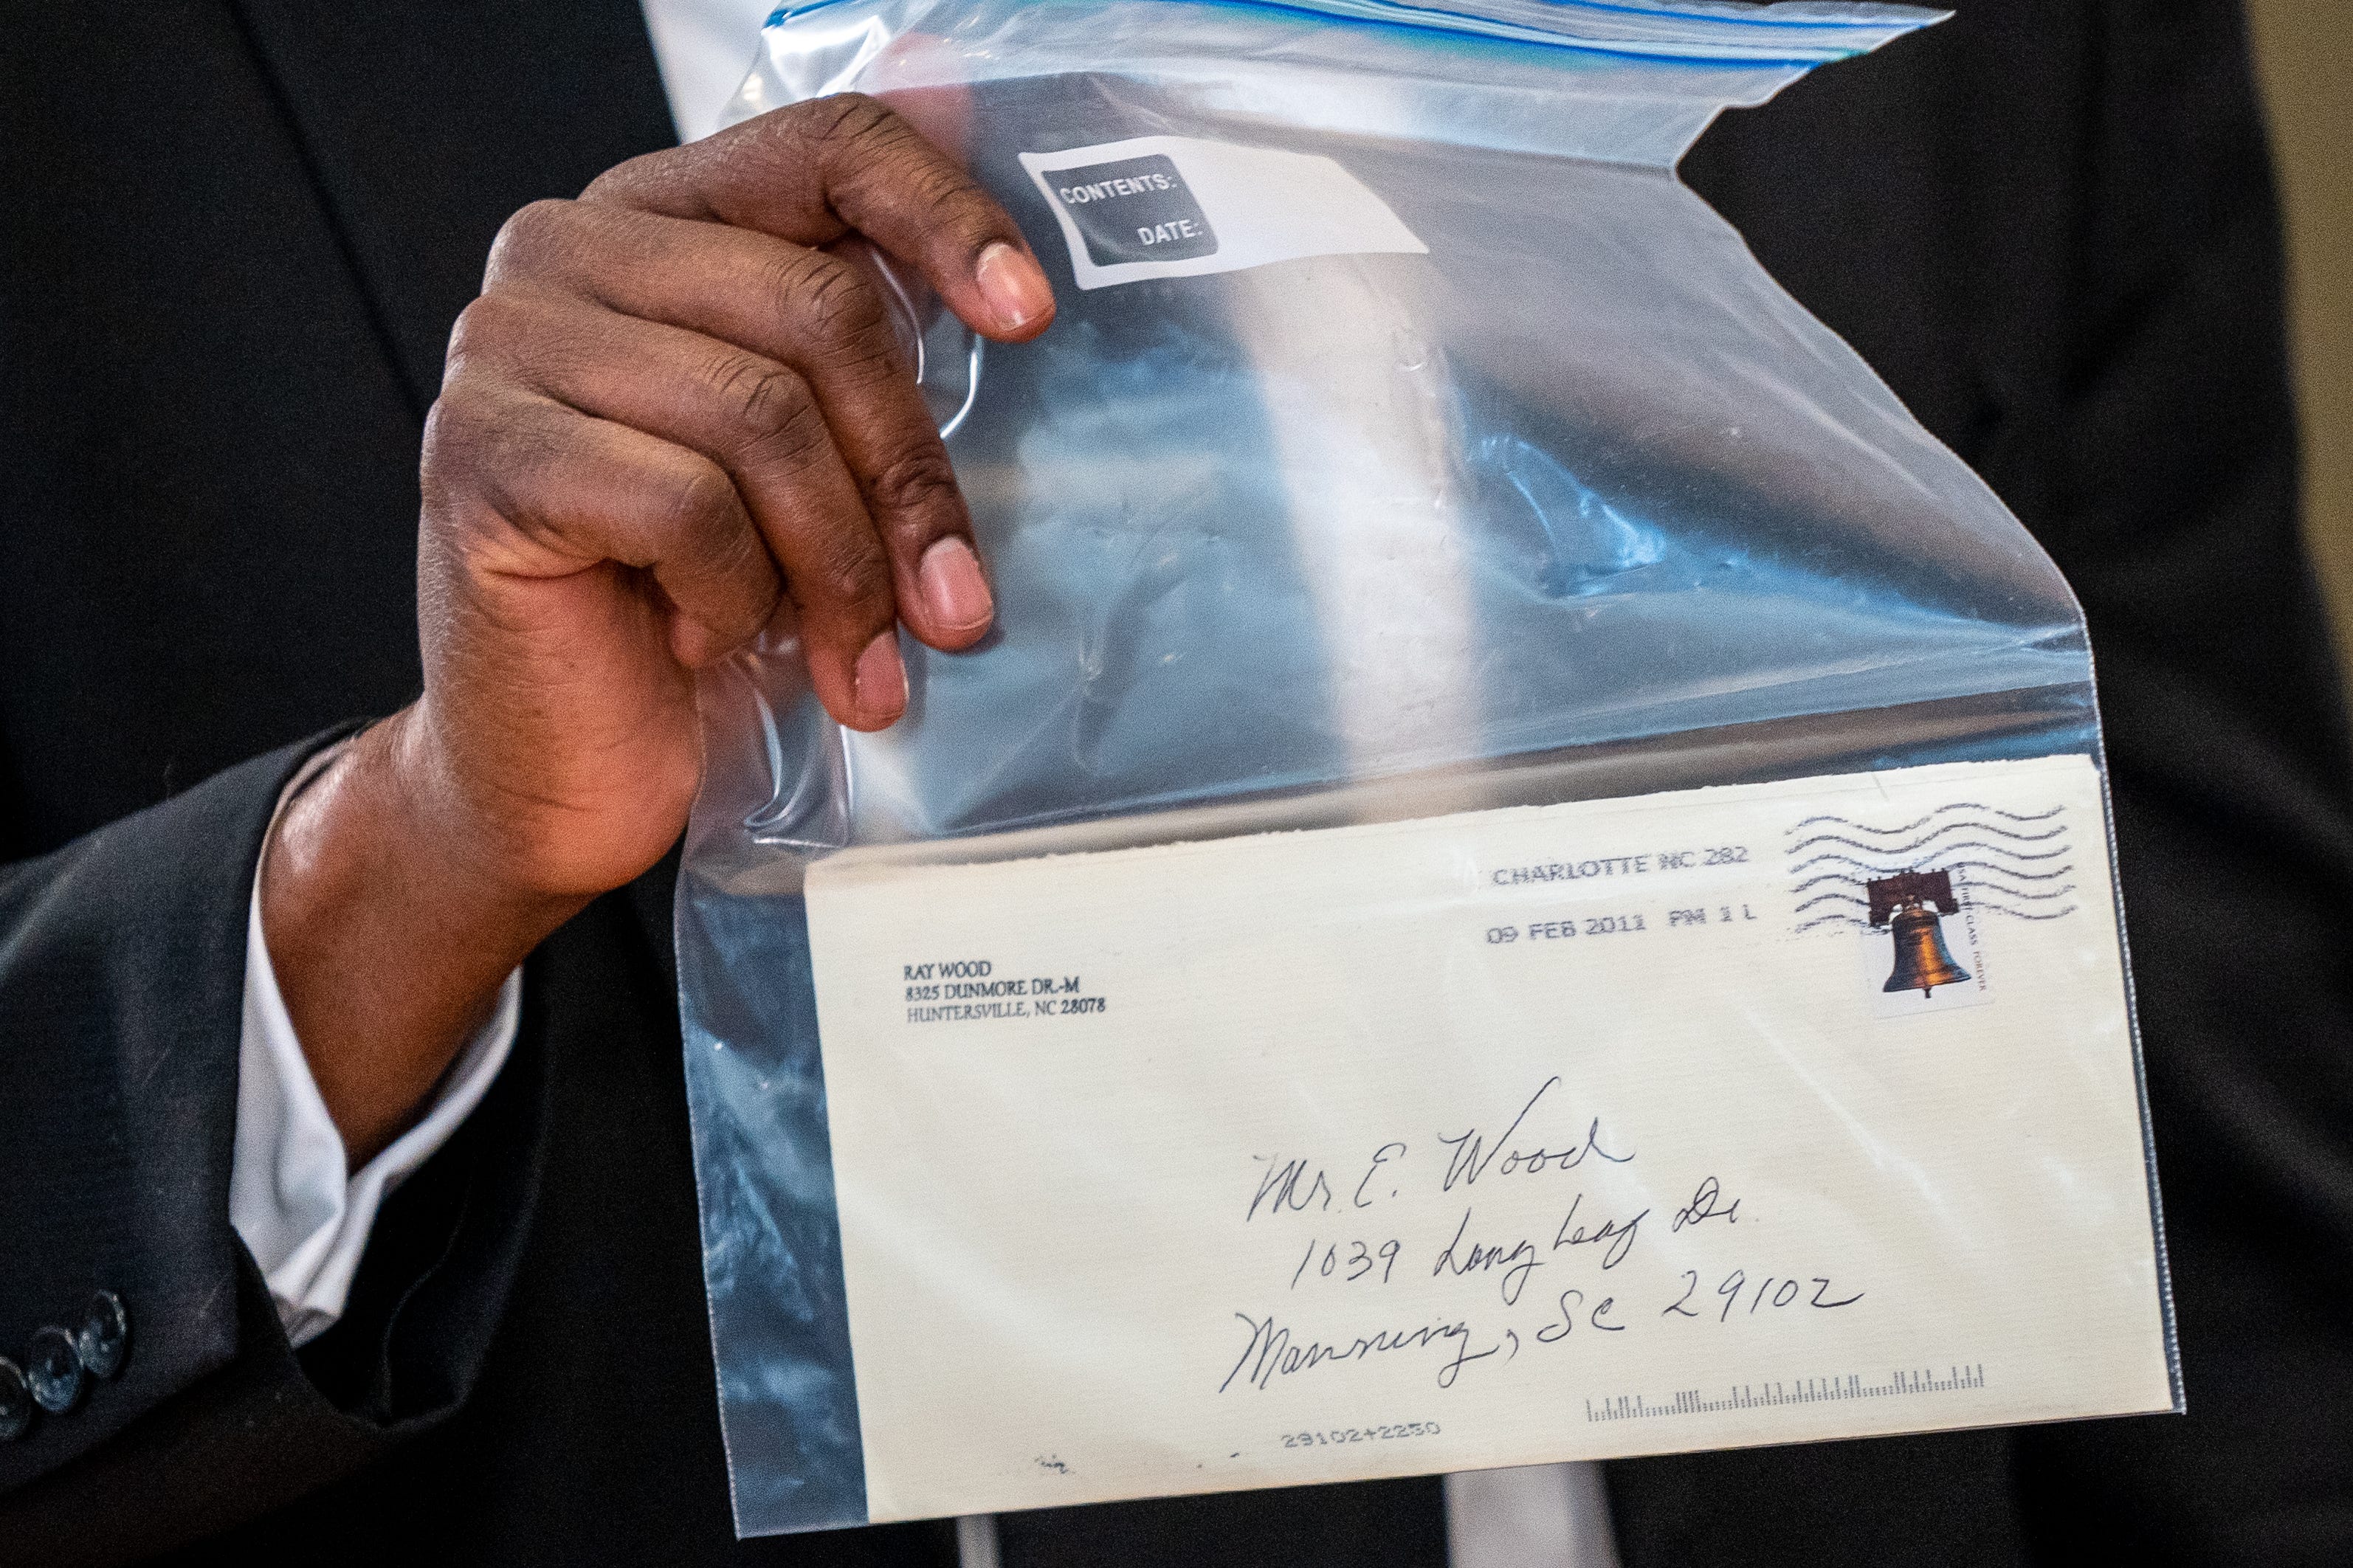 CONTENTS:
DATE:
CHARLOTTE NC 282
09 FEB 2011 PM 1 L
USA FIRST-CLASS FOREVER
RAY WOOD
8325 DUNMORE DR.-M
HUNTERSVILLE, NC 28078
Mr. E. Wood
1039 Long Leaf Dr.
Manning, SC 29102
29102+2250